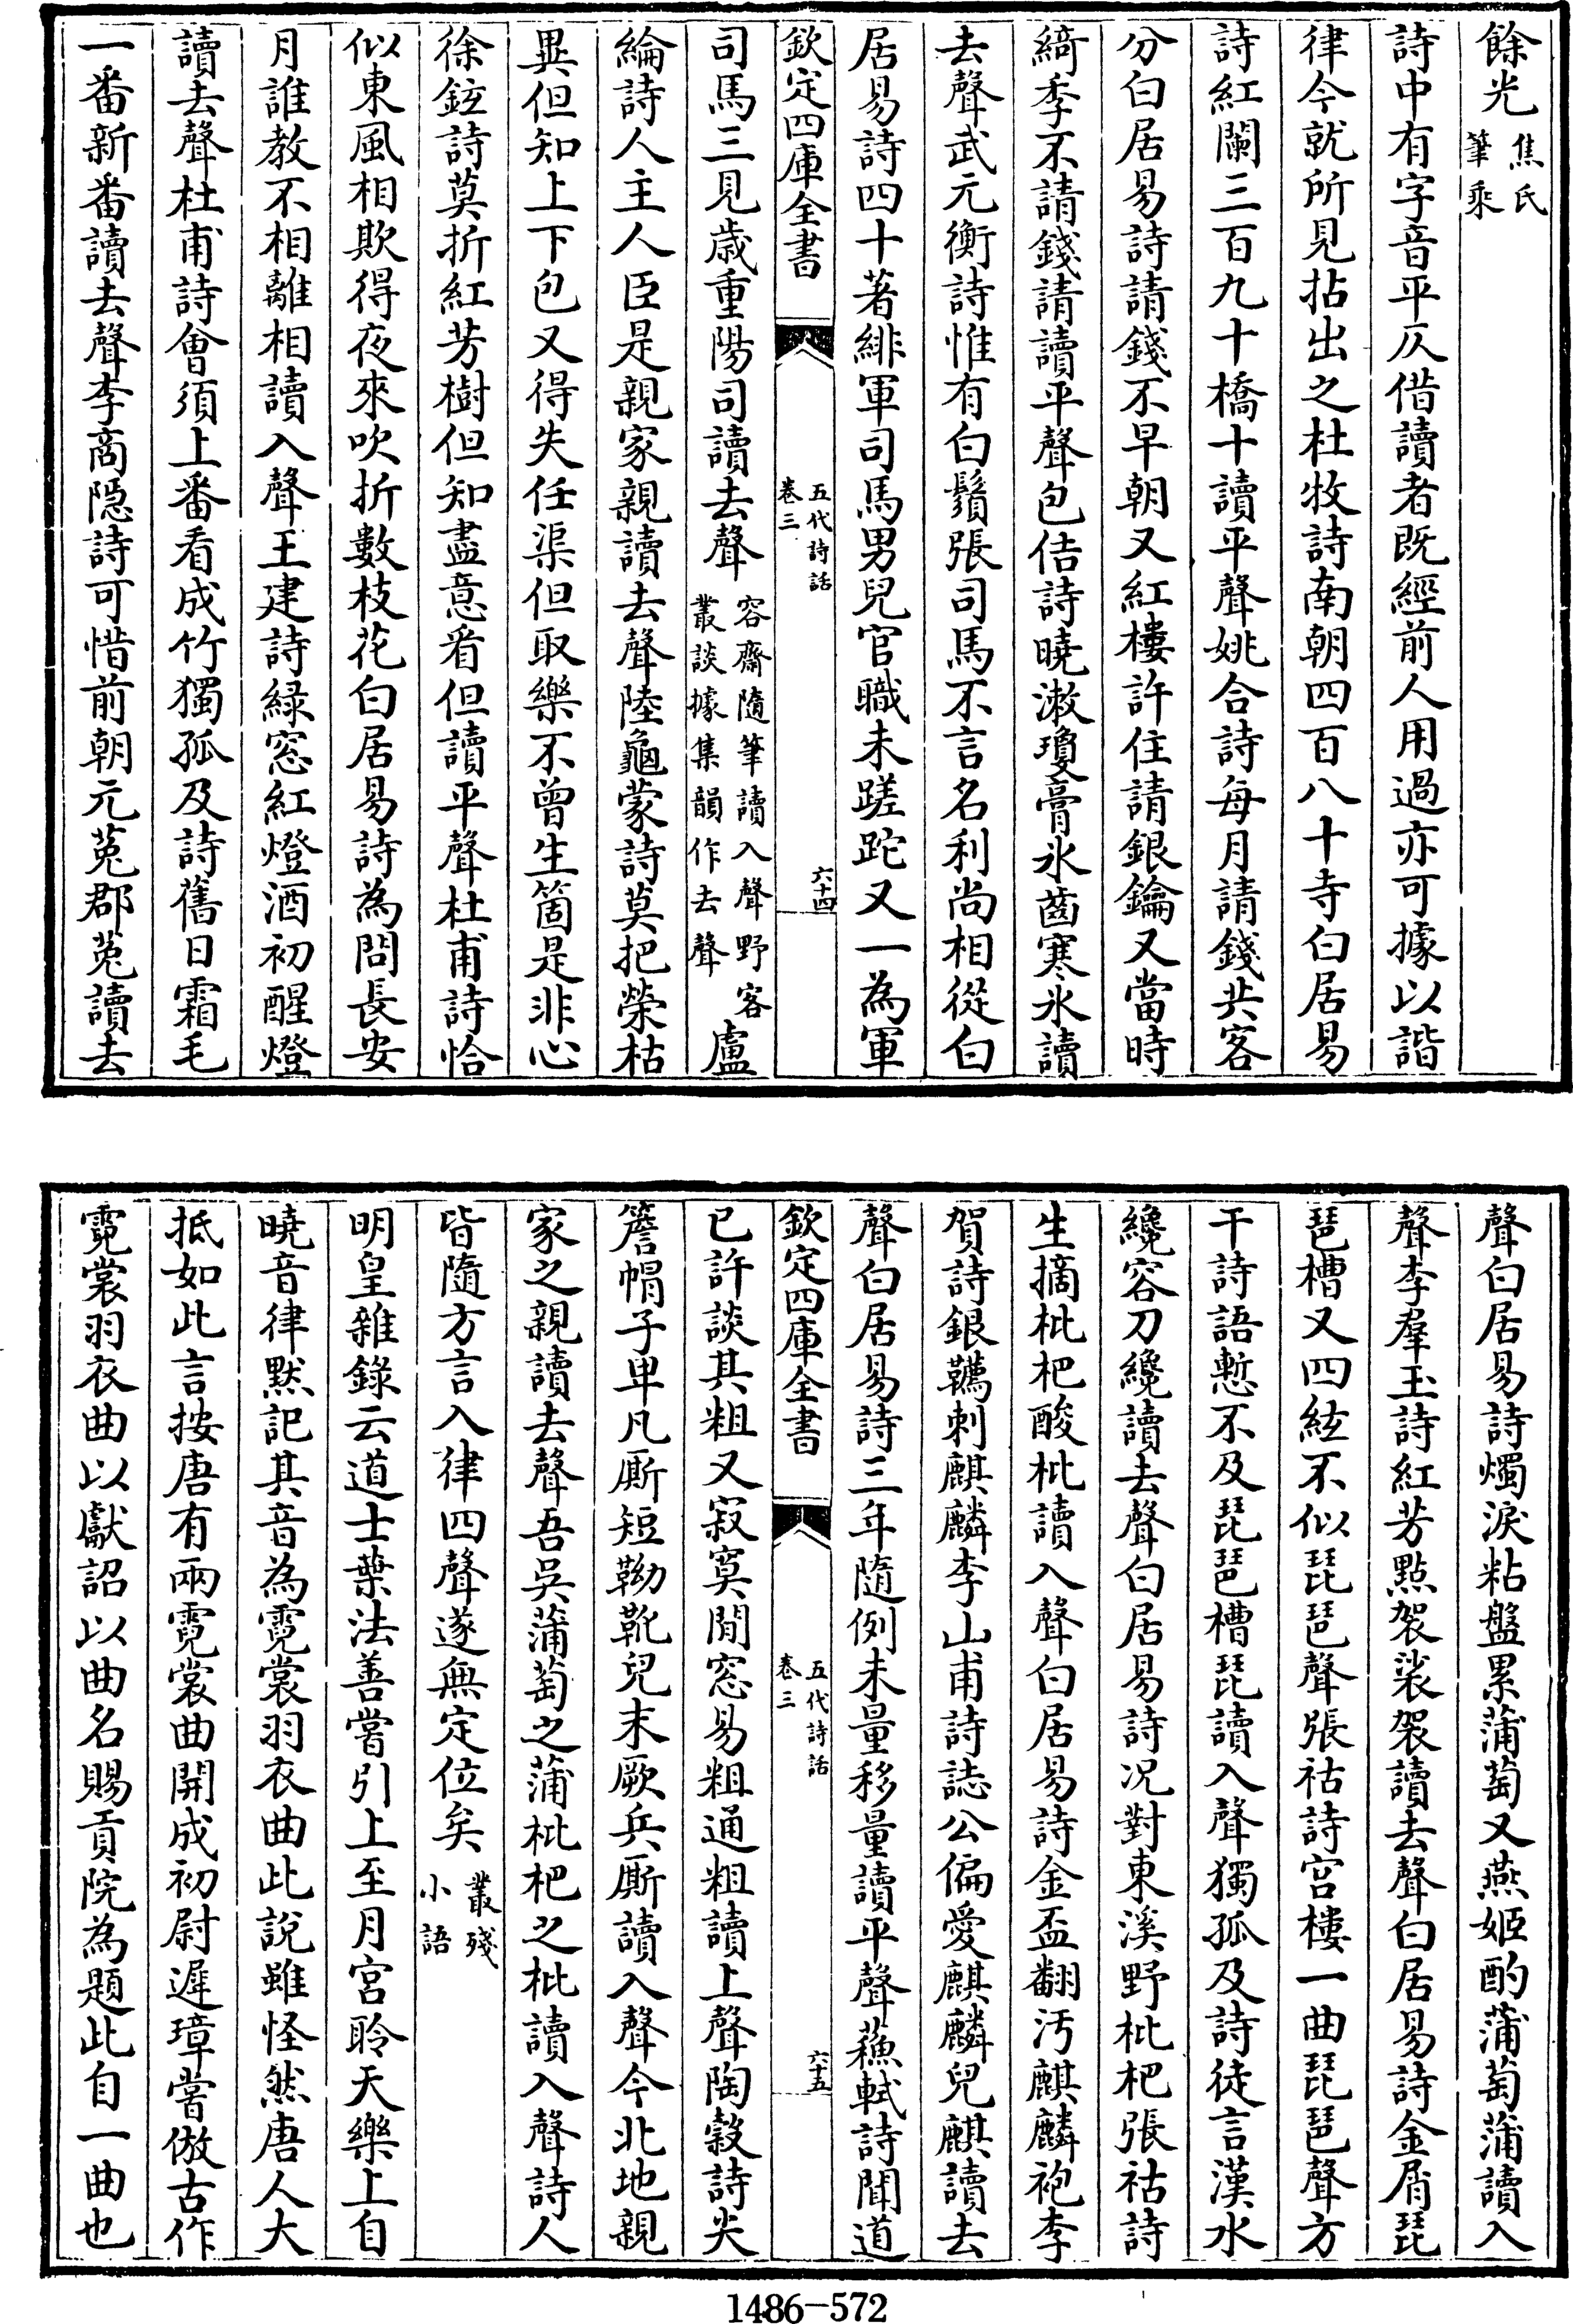 餘光焦氏筆乘
詩中有字音平仄借讀者既經前人用過亦可據以諧
律今就所見拈出之杜牧詩南朝四百八十寺白居易
詩紅闌三百九十橋十讀平聲姚合詩每月請錢共客
分白居易詩請錢不早朝又紅樓許住請銀鑰又當時
綺季不請錢請讀平聲包佶詩曉漱瓊膏冰齒寒冰讀
去聲武元衡詩惟有白鬚張司馬不言名利尚相從白
居易詩四十著緋軍司馬男兒官職未蹉跎又一為軍
欽定四庫全書 五代詩話卷三 六十四
司馬三見歲重陽司讀去聲容齋隨筆讀入聲野客叢談據集韻作去聲盧
綸詩人主人臣是親家親讀去聲陸龜蒙詩莫把榮枯
異但知上下包又得失任渠但取樂不曾生箇是非心
徐鉉詩莫折紅芳樹但知盡意看但讀平聲杜甫詩恰
似東風相欺得夜來吹折數枝花白居易詩為問長安
月誰教不相離相讀入聲王建詩緑窓紅燈酒初醒燈
讀去聲杜甫詩會須上番看成竹獨孤及詩舊日霜毛
一番新番讀去聲李商隐詩可惜前朝元菟郡菟讀去
聲白居易詩燭淚粘盤累蒲萄又燕姬酌蒲萄蒲讀入
聲李羣玉詩紅芳點袈裟袈讀去聲白居易詩金屑琵
琶槽又四絃不似琵琶聲張祜詩宮樓一曲琵琶聲方
干詩語慙不及琵琶槽琵讀入聲獨孤及詩徒言漢水
纔容刀纔讀去聲白居易詩况對東溪野枇杷張祜詩
生摘枇杷酸枇讀入聲白居易詩金盃翻汚麒麟袍李
賀詩銀韉刺麒麟李山甫詩誌公偏愛麒麟兒麒讀去
聲白居易詩三年隨例未量移量讀平聲蘓軾詩聞道
欽定四庫全書 五代詩話卷三 六十五
已許談其粗又寂寞閒窓易粗通粗讀上聲陶榖詩尖
簷帽子卑凡厮短靿靴兒末厥兵厮讀入聲今北地親
家之親讀去聲吾吳蒲萄之蒲枇杷之枇讀入聲詩人
皆隨方言入律四聲遂無定位矣叢殘小語
明皇雜錄云道士葉法善嘗引上至月宮聆天樂上自
曉音律默記其音為霓裳羽衣曲此說雖怪然唐人大
抵如此言按唐有兩霓裳曲開成初尉遲璋嘗倣古作
霓裳羽衣曲以獻詔以曲名賜貢院為題此自一曲也
1486-572